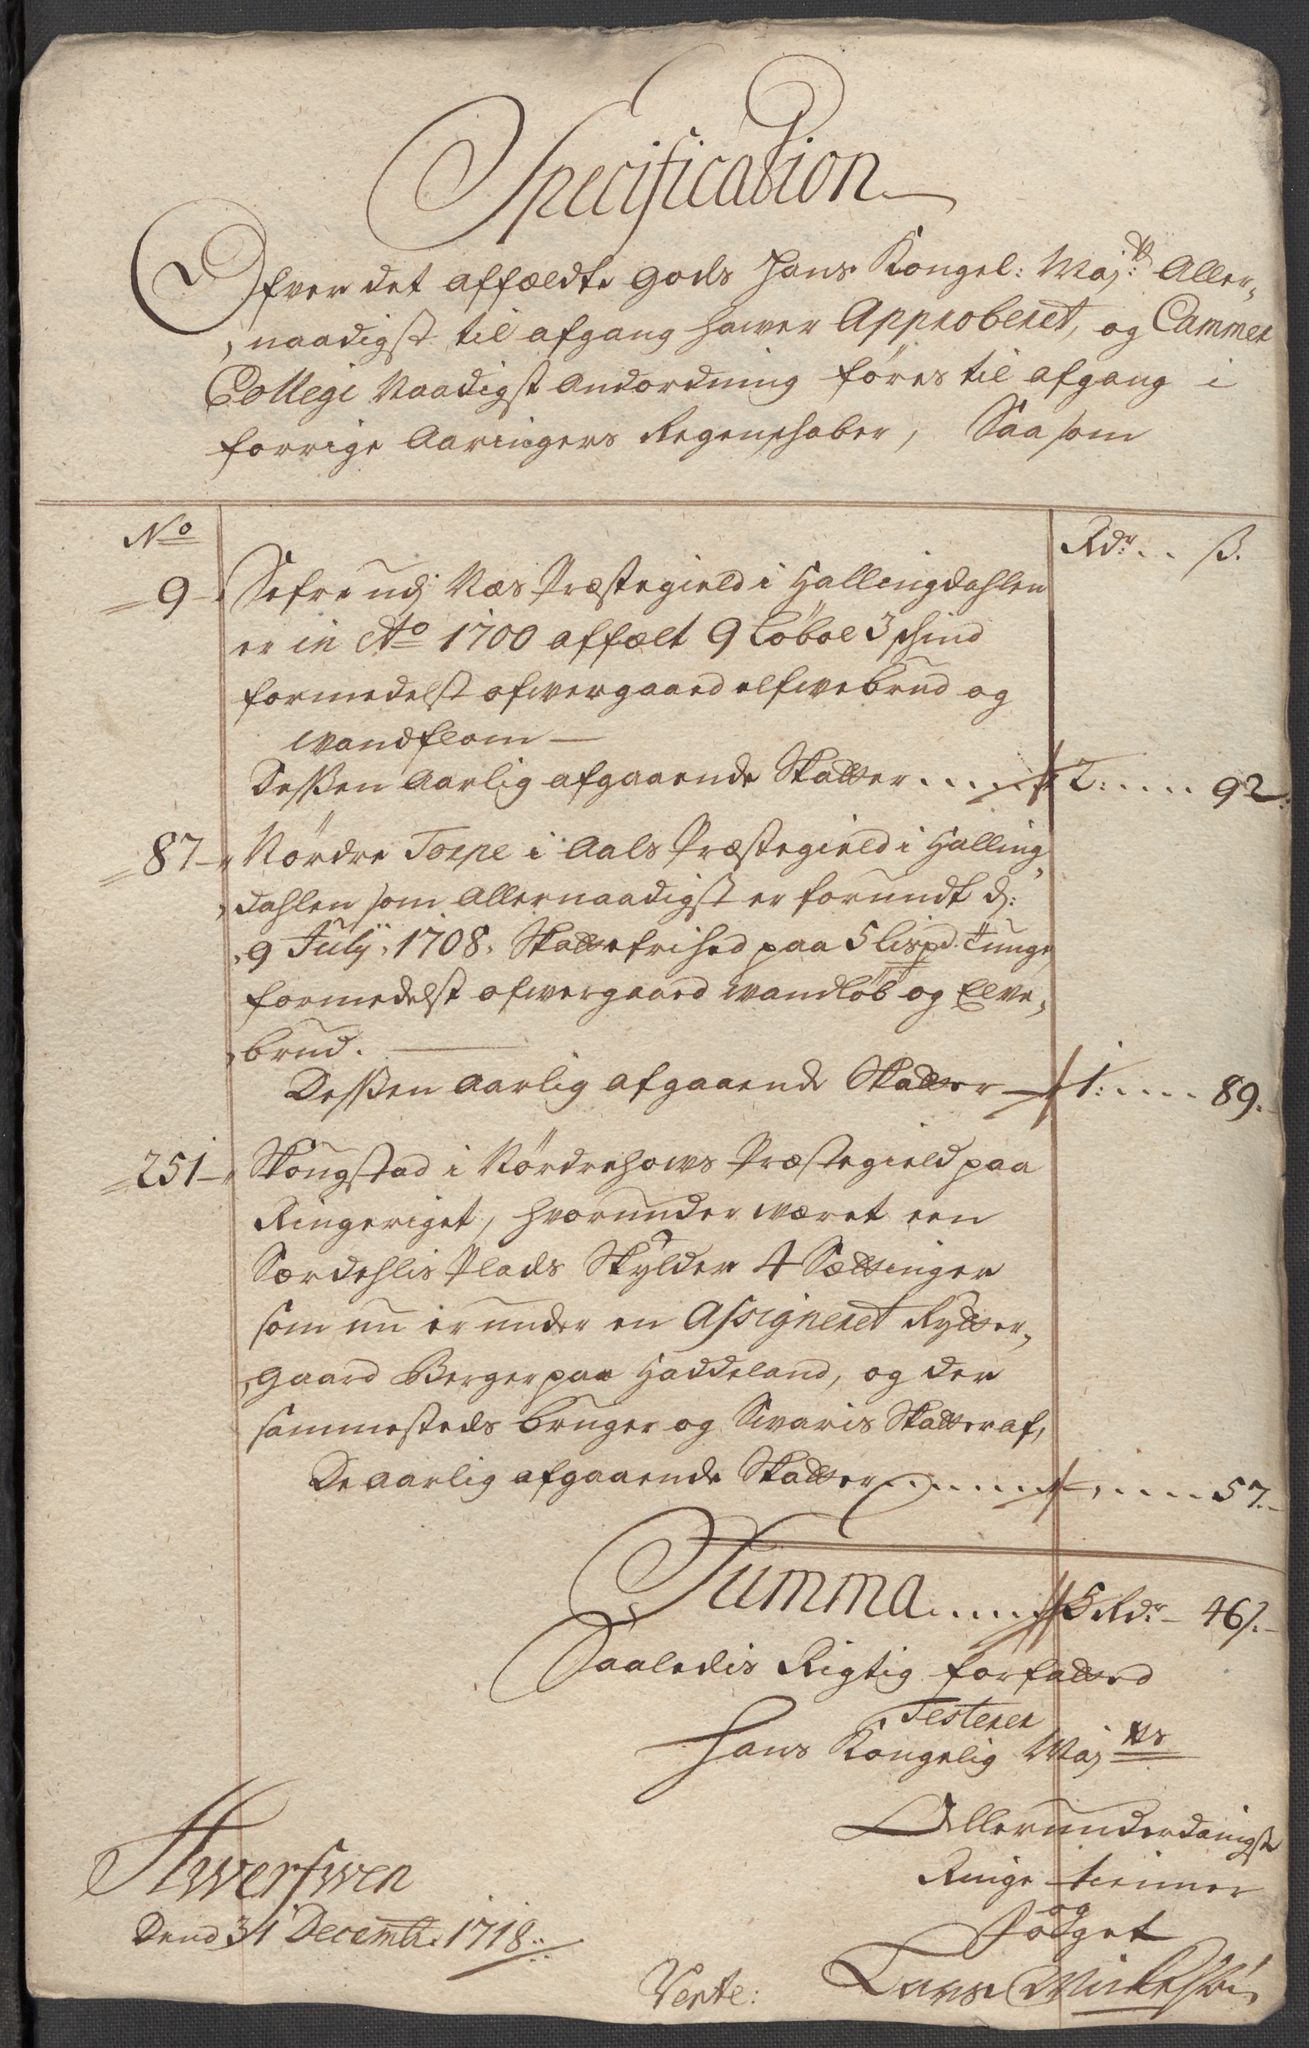 Specification
Ofver det affældte gods Hans Kongel: Maj:tt Aller-
naadigst til afgang hawer Approberet, og Cammer
Collegi Naadigst Andordning føres til afgang i
forrige Aaringers Regenskaber, Saasom
No Rdr... ß.
9 Sefre udj Næs Præstegield i Hallingdahlen
er in Ao 1700 affælt 9 Løbol 3 skind
formedelst ofwergaaed elfwebrud og
wandflom —
Desßen Aarlig afgaaende Skatter..... 2:.... 92:
87 Nørdre Torpe i Aals Præstegield i Halling,
dahlen som Allernaadigst er forundt d:
9 Julij 1708. Skattefrihed paa 5 Lispd. Tunge
formedelst ofwergaaed wandløb og Elve,
brud.
Desßen Aarlig afgaaende Skatter — 1:.... 89.
251 Skougstad i Nørdrehows Præstegield paa
Ringeriget, hvorunder wæret een
Særdehlis Plads Skylder 4 Sættinger
som nu er under en Assigneret Rytter-
gaard Berger paa Haddeland, og der
sammesteds bruger og Svaris Skatter af,
De aarlig afgaaende Skatter...... 57.
Summa..... 5 Rdr – 46ß.
Saaledis Rigtig forfatted
Testerer
Hans Kongelig Maj tts
Allerunderdanigste
Ringe tienner
og
Fodget
Hwerfwen
Dend 31 Decembr. 1718
Verte: